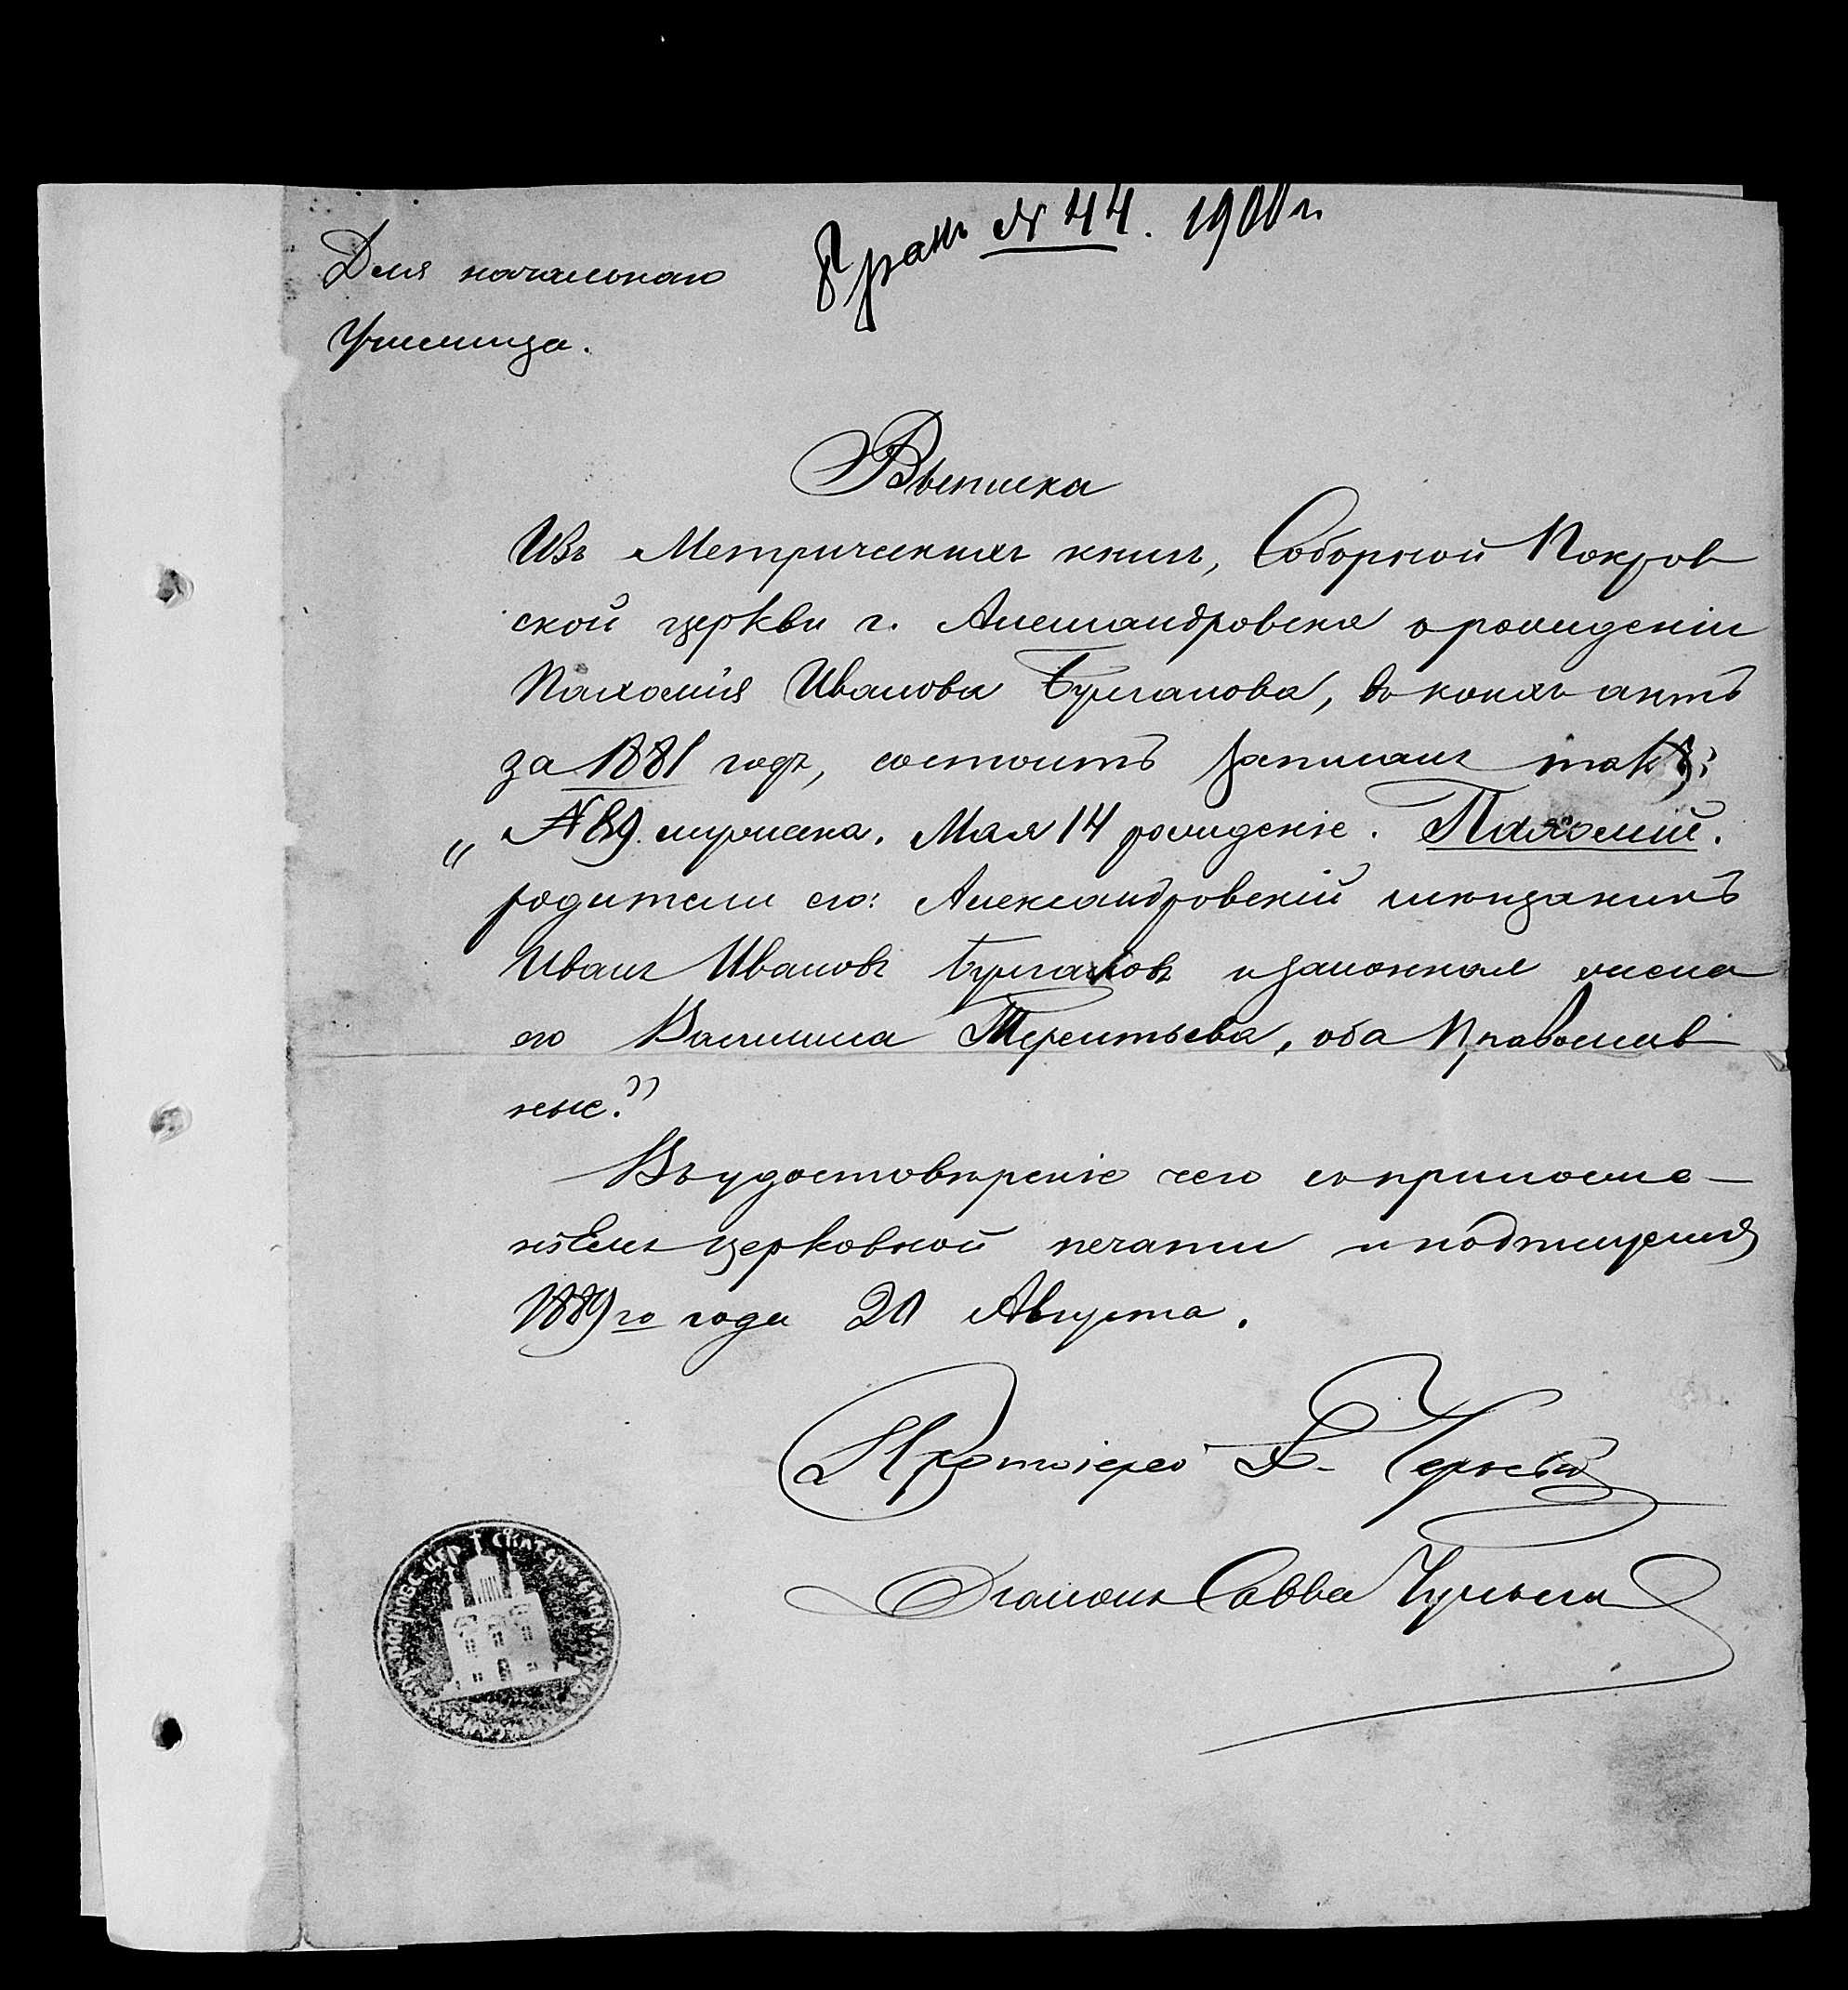 № 44. 1900 г.
Для начальнаго
Училища.
Выписка
Изъ Метрическихъ книгъ, Соборной Покров
ской церкви г. Александровска о рожденіи
Пахомія Иванова Булганова, въ коихъ актъ
за 1881 годъ, состоитъ записанъ такъ:
„ № 89. мужеска. Мая 14 рожденіе. Пахомій.
родители его: Александровскій мѣщанинъ
Иванъ Ивановъ Булгановъ и законная жена
его Василиса Терентьева, оба Православ
ные.”
Въ удостовѣреніе чего съ приложе-
ніемъ церковной печати и подтверждія
1889го года 20 Августа.
Протоіерей
Діаконъ Савва